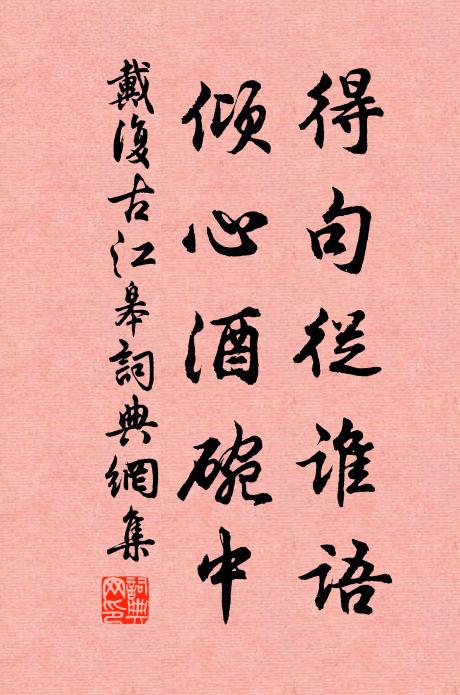 得句從誰語
傾心酒碗中
戴復古江皋詞典網集
詞典網印